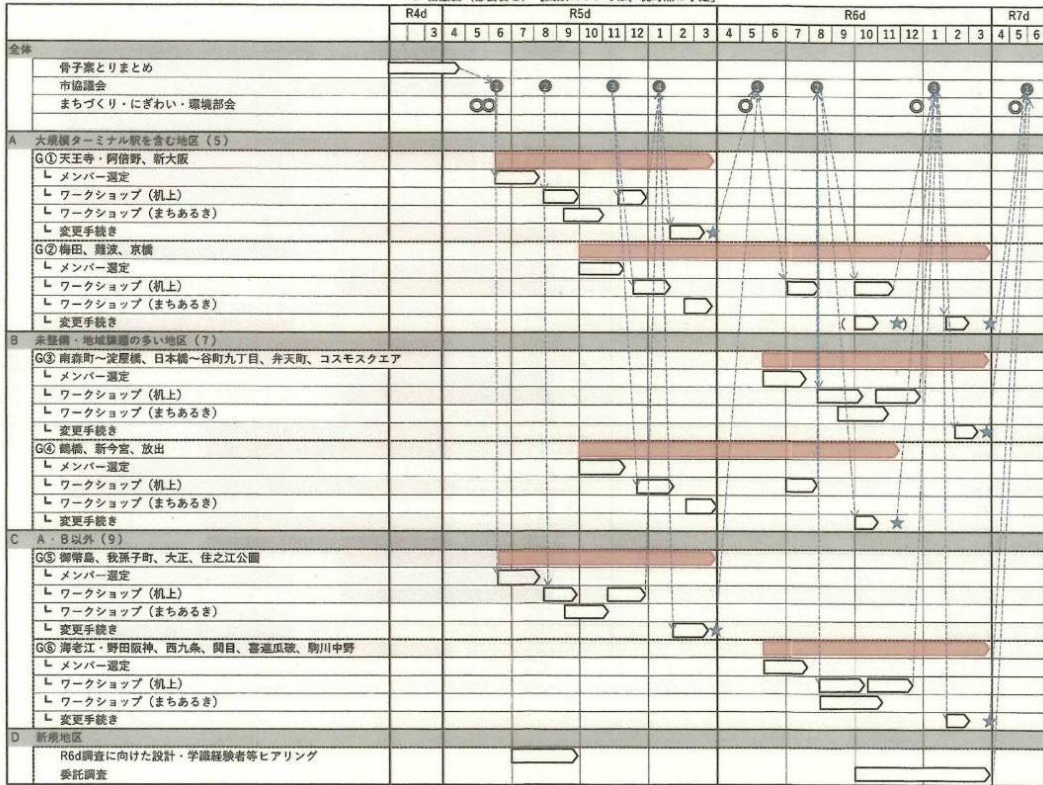 R4d R5d R6d R7d
3 4 5 6 7 8 9 10 11 12 1 2 3 4 5 6 7 8 9 10 11 12 1 2 3 4 5 6
全体
骨子案とりまとめ
市協議会 ① ② ③ ④ ① ② ③ ①
まちづくり・にぎわい・環境部会
A 大規模ターミナル駅を含む地区（5）
G①天王寺・阿倍野、新大阪
┗ メンバー選定
┗ ワークショップ（机上）
┗ ワークショップ（まちあるき）
┗ 変更手続き ★
G②梅田、難波、京橋
┗ メンバー選定
┗ ワークショップ（机上）
┗ ワークショップ（まちあるき）
┗ 変更手続き （ ★） ★
B 未整備・地域課題の多い地区（7）
G③ 南森町～淀屋橋、日本橋～谷町九丁目、弁天町、コスモスクエア
┗ メンバー選定
┗ ワークショップ（机上）
┗ ワークショップ（まちあるき）
┗ 変更手続き ★
G④ 鶴橋、新今宮、放出
┗ メンバー選定
┗ ワークショップ（机上）
┗ ワークショップ（まちあるき）
┗ 変更手続き ★
C A・B以外（9）
G⑤ 御幣島、我孫子町、大正、住之江公園
┗ メンバー選定
┗ ワークショップ（机上）
┗ ワークショップ（まちあるき）
┗ 変更手続き ★
G⑥ 海老江・野田阪神、西九条、関目、喜連瓜破、駒川中野
┗ メンバー選定
┗ ワークショップ（机上）
┗ ワークショップ（まちあるき）
┗ 変更手続き ★
D 新規地区
R6d調査に向けた設計・学識経験者等ヒアリング
委託調査